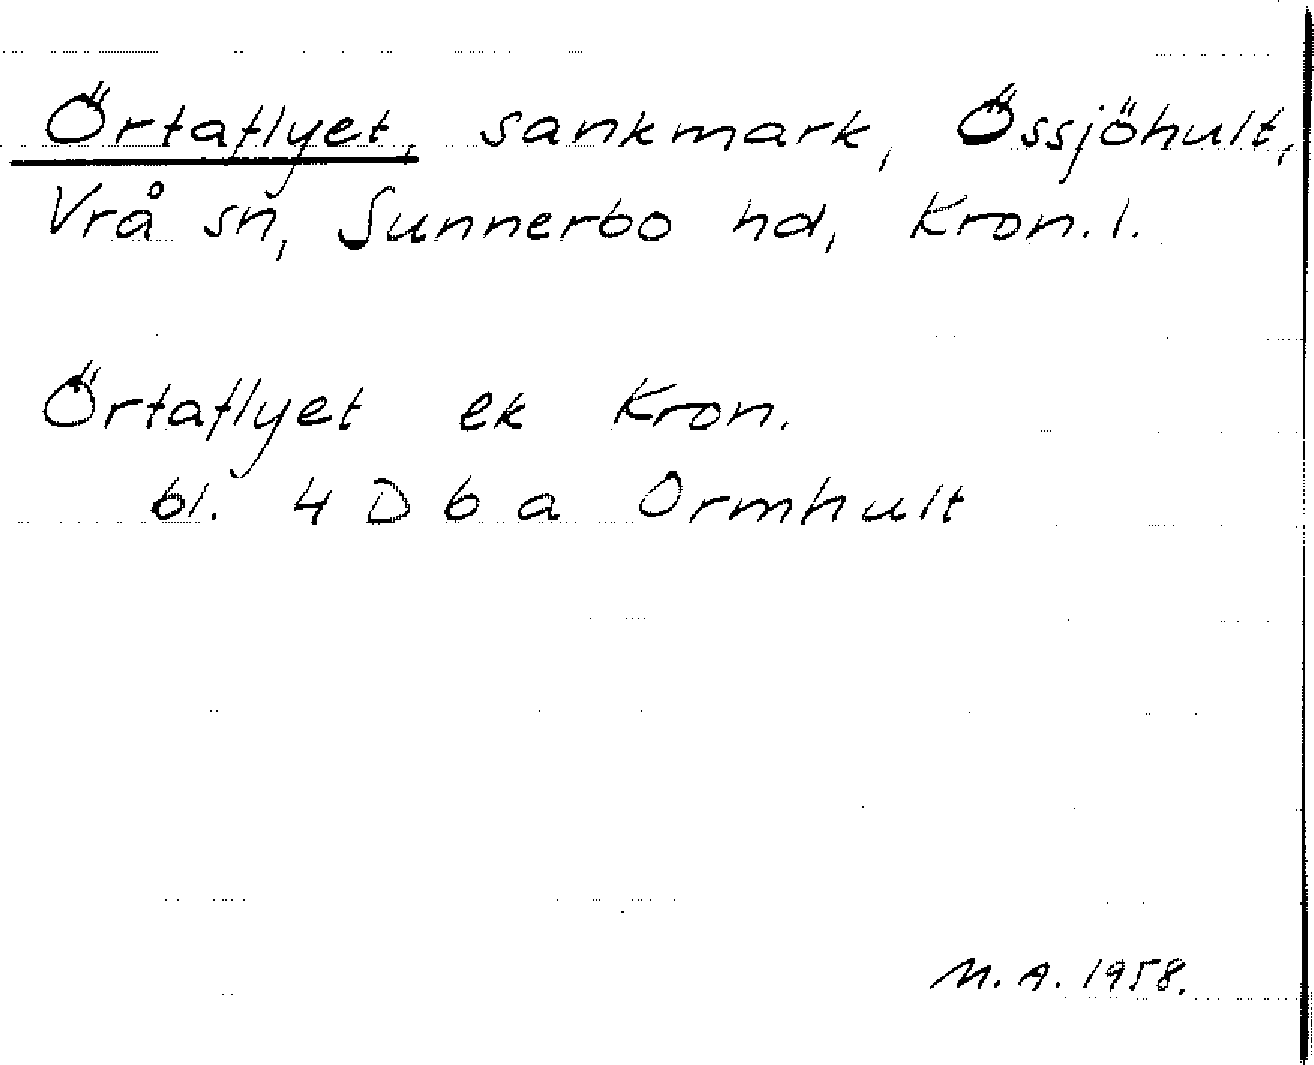 Örtaflyet, sankmark, Össjöhult,
Vrå sn, Sunnerbo hd, Kron. l.
Örtaflyet ek Kron.
bl. 4 D 6 a Ormhult
M. A. 1958.